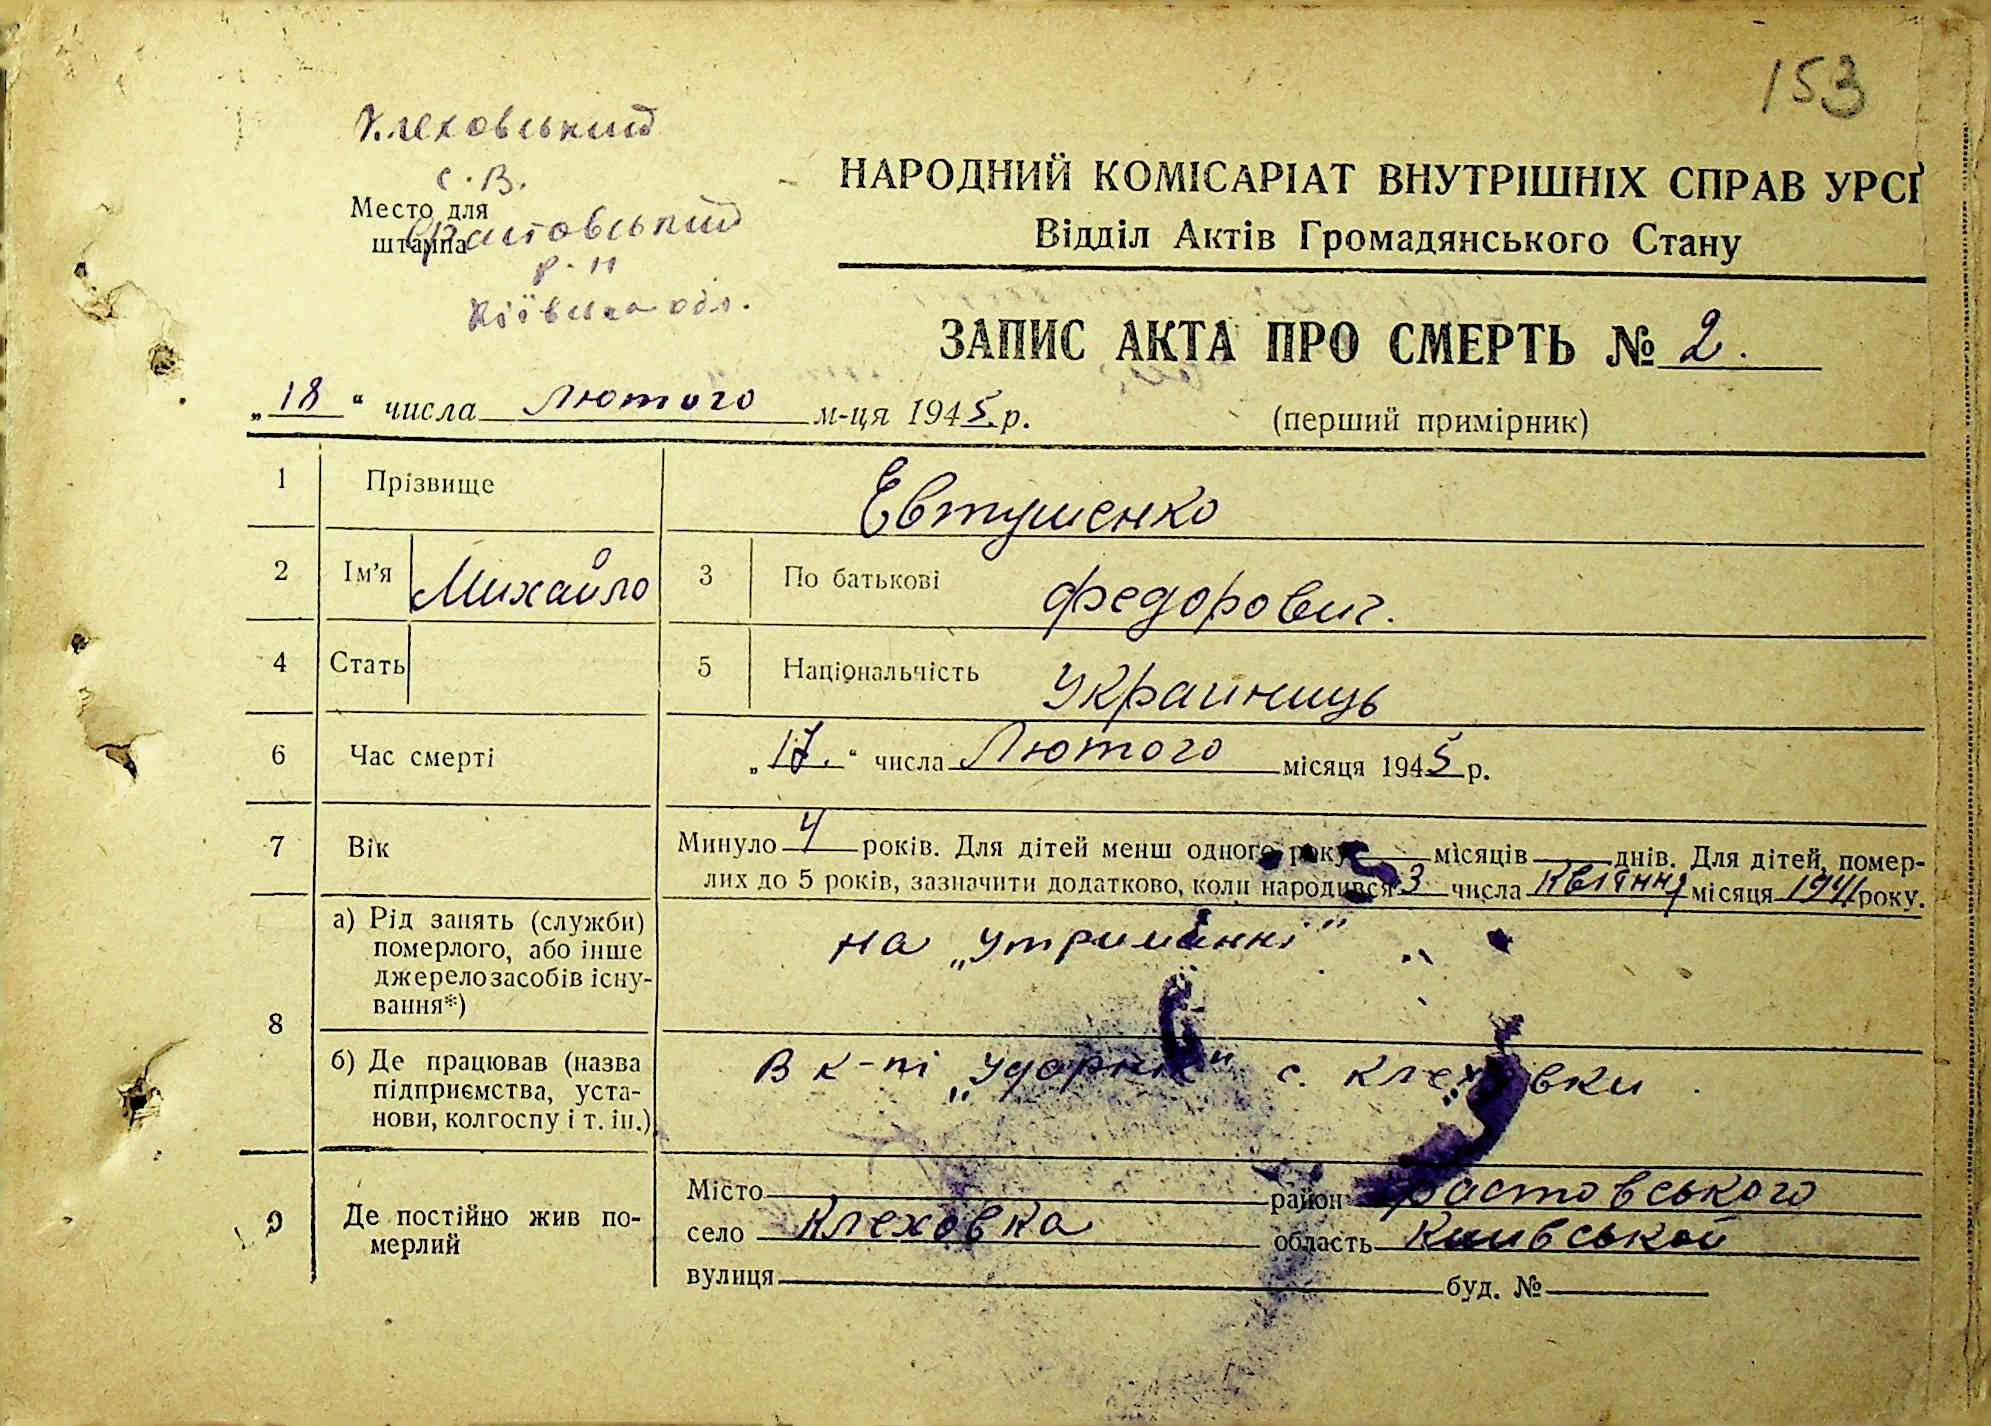 153
Клеховський
с. в.
Место для
штампа
Фастовський
р-н
Київська обл.
НАРОДНИЙ КОМІСАРІАТ ВНУТРІШНІХ СПРАВ УРСР
Відділ Актів Громадянського Стану
ЗАПИС АКТА ПРО СМЕРТЬ № 2.
„18“ числа Лютого м-ця 1945 р.
(перший примірник)
1 Прізвище Евтушенко
2 Ім'я Михайло 3 По батькові Федорович.
4 Стать 5 Національність Украиниць
6 Час смерті „17.“ числа Лютого місяця 1945 р.
7 Вік Минуло 4 років. Для дітей менш одного року місяців днів. Для дітей, помер-
лих до 5 років, зазначити додатково, коли народився 3 числа Квітння місяця 1941 року.
8
а) Рід занять (служби)
померлого, або інше
джерело засобів існу-
вання*)
на „утриманні"
б) Де працював (назва
підприємства, уста-
нови, колгоспу і т. ін.)
В к-пі „Ударник" с. Клеховки
9 Де постійно жив по-
мерлий
Місто район Фастовського
село Клеховка область Киивськой
вулиця буд. №